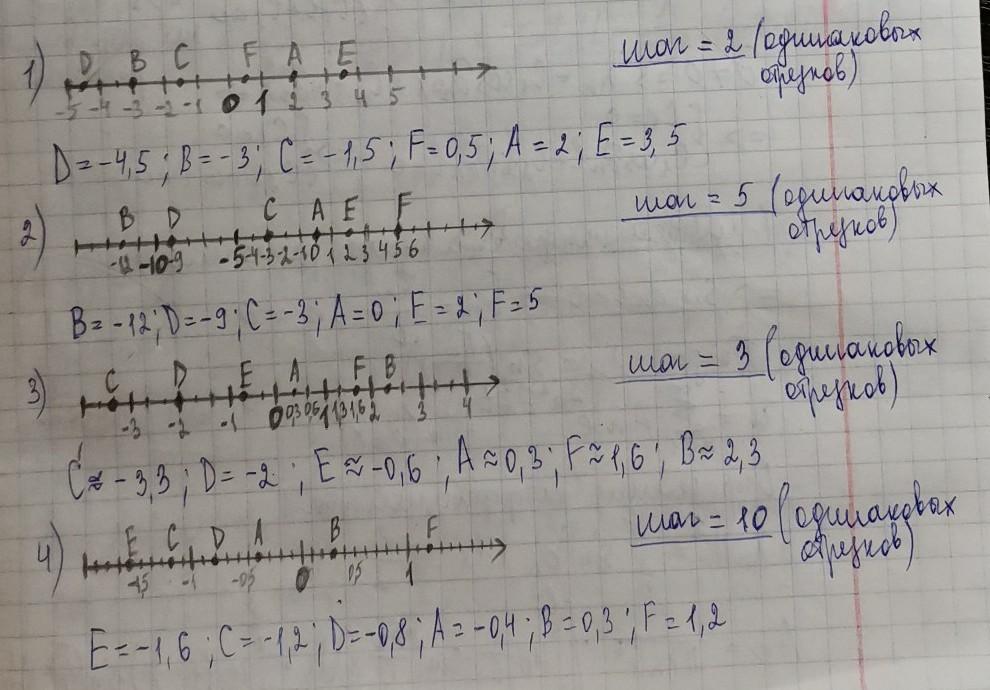 1) D B C F A E
-5 -4 -3 -2 -1 0 1 2 3 4 5
шаг = 2 (одинаковых
отрезков)
D = -4,5; B = -3; C = -1,5; F = 0,5; A = 2; E = 3,5
2) B D C A E F
-12 -10 -9 -5 -4 -3 -2 -1 0 1 2 3 4 5 6
шаг = 5 (одинаковых
отрезков)
B = -12; D = -9; C = -3; A = 0; E = 2; F = 5
3) C D E A F B
-3 -2 -1 0 0,3 0,6 1 1,3 1,6 2 3 4
шаг = 3 (одинаковых
отрезков)
C ≈ -3,3; D = -2; E ≈ -0,6; A ≈ 0,3; F ≈ 1,6; B ≈ 2,3
4) E C D A B F
-1,5 -1 -0,5 0 0,5 1
шаг = 10 (одинаковых
отрезков)
E = -1,6; C = -1,2; D = -0,8; A = -0,4; B = 0,3; F = 1,2